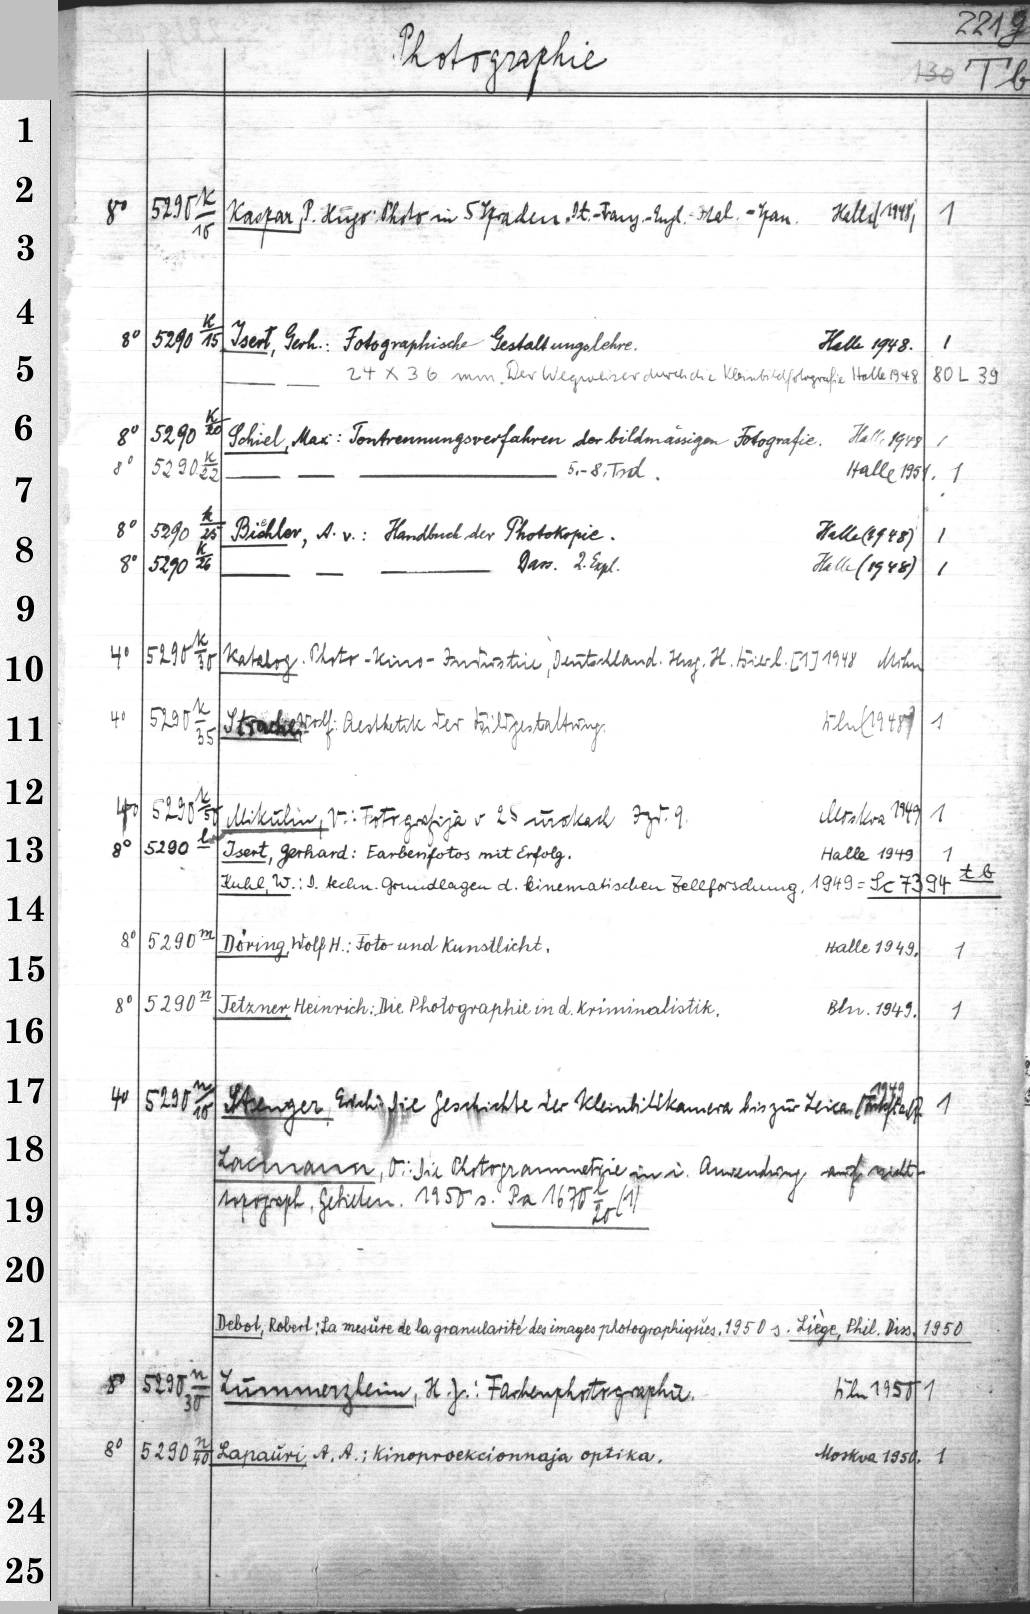 221g
Photographie
130 Tb
1
2
8° 5290 k/10 Kaspar, P. Hugo: Photo in 5 Spraden. Dt.-Franz.-Engl.-Ital.-Span. Halle (1948) 1
3
4
8° 5290 k/15 Isert, Gerh.: Fotographische Gestaltungslehre. Halle 1948. 1
5 — — 24 x 36 mm. Der Wegweiser durch die Kleinbildfotografie Halle 1948 80 L 39
6 8° 5290 k/20 Schiel, Max: Tontrennungsverfahren der bildmässigen Fotografie. Halle 1948 1
8° 5290 k/22 — — — 5.-8. Tsd. Halle 1951. 1
7
8° 5290 k/25 Bichler, A. v.: Handbuch der Photokopie. Halle (1948) 1
8
8° 5290 k/26 — — — Dass. 2. Expl. Halle (1948) 1
9
10 4° 5290 k/30 Katalog. Photo-Kino-Industrie, Deutschland. Hrsg. H. [1] 1948 Mchn
11 4° 5290 k/35 Strache, Wolf: Aesthetik der Bildgestaltung. Bln (1948) 1
12
4° 5290 k/50 Mikulin, V.: Fotografija v 25 urokach Izd. 9. Moskva 1949 1
13 8° 5290 l Isert, Gerhard: Farbenfotos mit Erfolg. Halle 1949 1
Kuhl, W.: D. techn. Grundlagen d. kinematischen Zellforschung. 1949 = Sc 7394 tb
14
8° 5290 m Döring, Wolf H.: Foto und Kunstlicht. Halle 1949. 1
15
8° 5290 n Tetzner Heinrich: Die Photographie in d. Kriminalistik. Bln. 1949. 1
16
17 4° 5290 n/10 Stenger, Erich: Die Geschichte der Kleinbildkamera bis zur Leica. 1949 1
18 Lacmann, O.: Die Photogrammetrie in i. Anwendung auf nicht-
19 topograph. Gebieten. 1950 s. Pa 1670 /20 (1)
20
21 Debot, Robert: La mesure de la granularité des images photographiques. 1950 s. Liège, Phil. Diss. 1950
22 8° 5290 n/30 Lummerzheim, H. J.: Farbenphotographie. Bln 1950 1
23 8° 5290 n/40 Lapauri, A. A.: Kinoproekcionnaja optika. Moskva 1950. 1
24
25